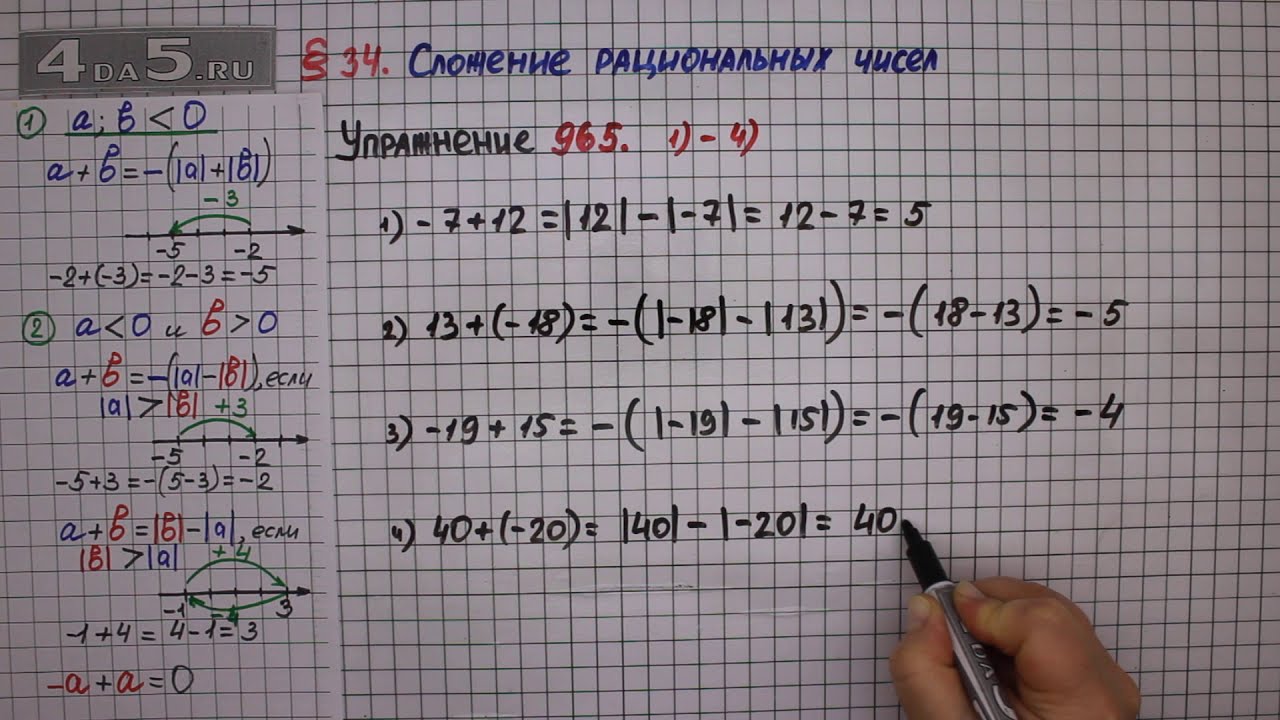 4DA5.RU
§ 34. Сложение рациональных чисел
① a; b < 0
a + b = -(|a|+|b|)
-3
-5 -2
-2+(-3)=-2-3=-5
② a<0 и b>0
a+b=-(|a|-|b|), если
|a|>|b| +3
-5 -2
-5+3=-(5-3)=-2
a+b=|b|-|a|, если
|b|>|a| +4
-1 -4 3
-1+4=4-1=3
-a+a=0
Упражнение 965. 1)-4)
1) -7+12=|12|-|-7|=12-7=5
2) 13+(-18)=-(|-18|-|13|)=-(18-13)=-5
3) -19+15=-(|-19|-|15|)=-(19-15)=-4
4) 40+(-20)=|40|-|-20|=40